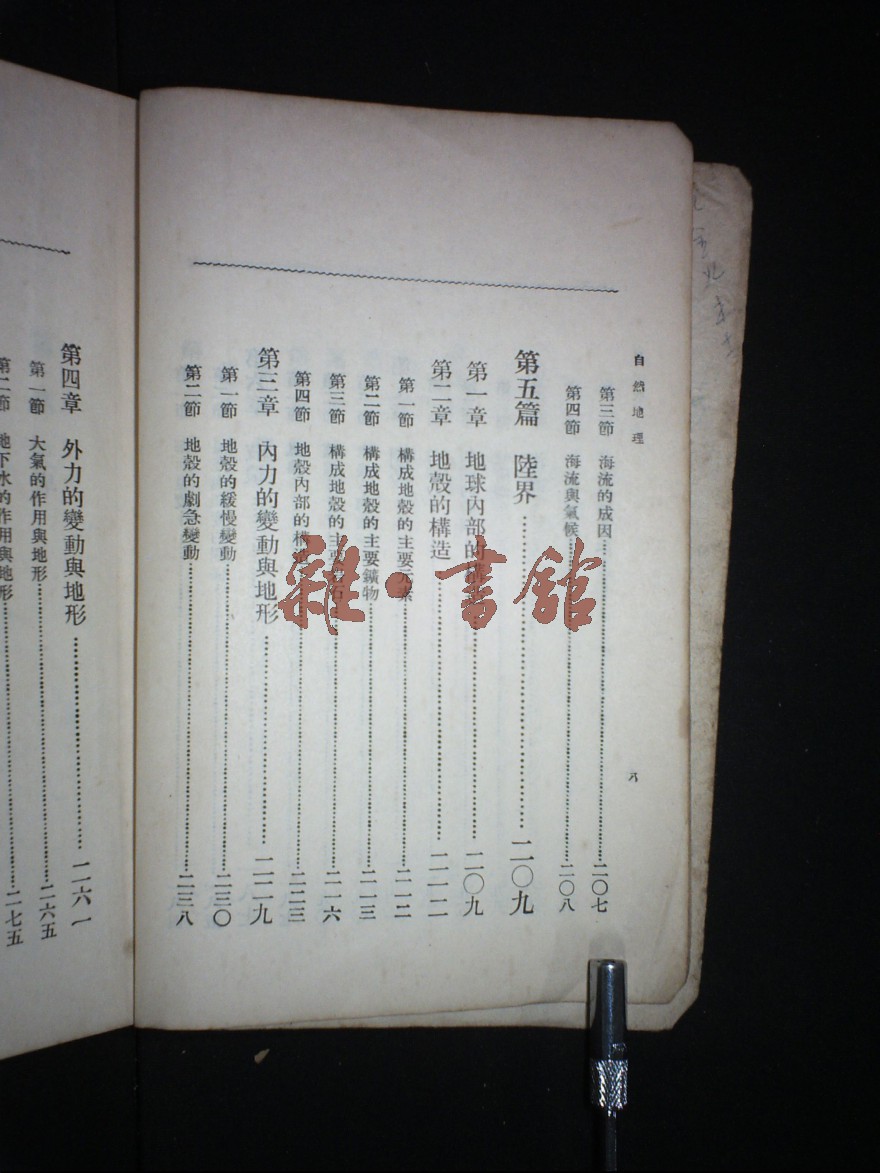 自然地理
八
第三節 海流的成因 二〇七
第四節 海流與氣候 二〇八
第五篇 陸界 二〇九
第一章 地球內部的構造 二〇九
第二章 地殼的構造 二一二
第一節 構成地殼的主要元素 二一二
第二節 構成地殼的主要鑛物 二一三
第三節 構成地殼的主要岩石 二一六
第四節 地殼內部的構造 二二三
第三章 內力的變動與地形 二二九
第一節 地殼的緩慢變動 二三〇
第二節 地殼的劇急變動 二三八
第四章 外力的變動與地形 二六一
第一節 大氣的作用與地形 二六五
第二節 地下水的作用與地形 二七五
雜·書館